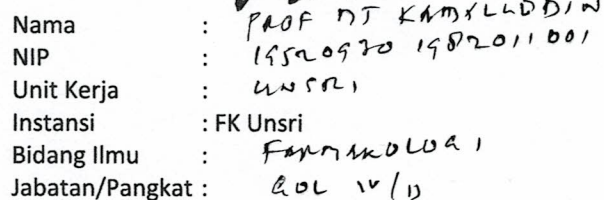 Nama : PROF DT KAMALUDDIN
NIP : 19520930 198201 1 001
Unit Kerja : UNSRI
Instansi : FK Unsri
Bidang Ilmu : FARMAKOLOGI
Jabatan/Pangkat : GOL IV/D